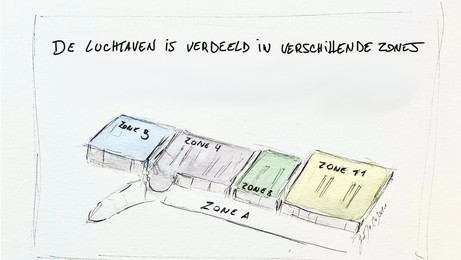 DE LUCHTAVEN IS VERDEELD IN VERSCHILLENDE ZONES
ZONE 4
ZONE 11
ZONE A